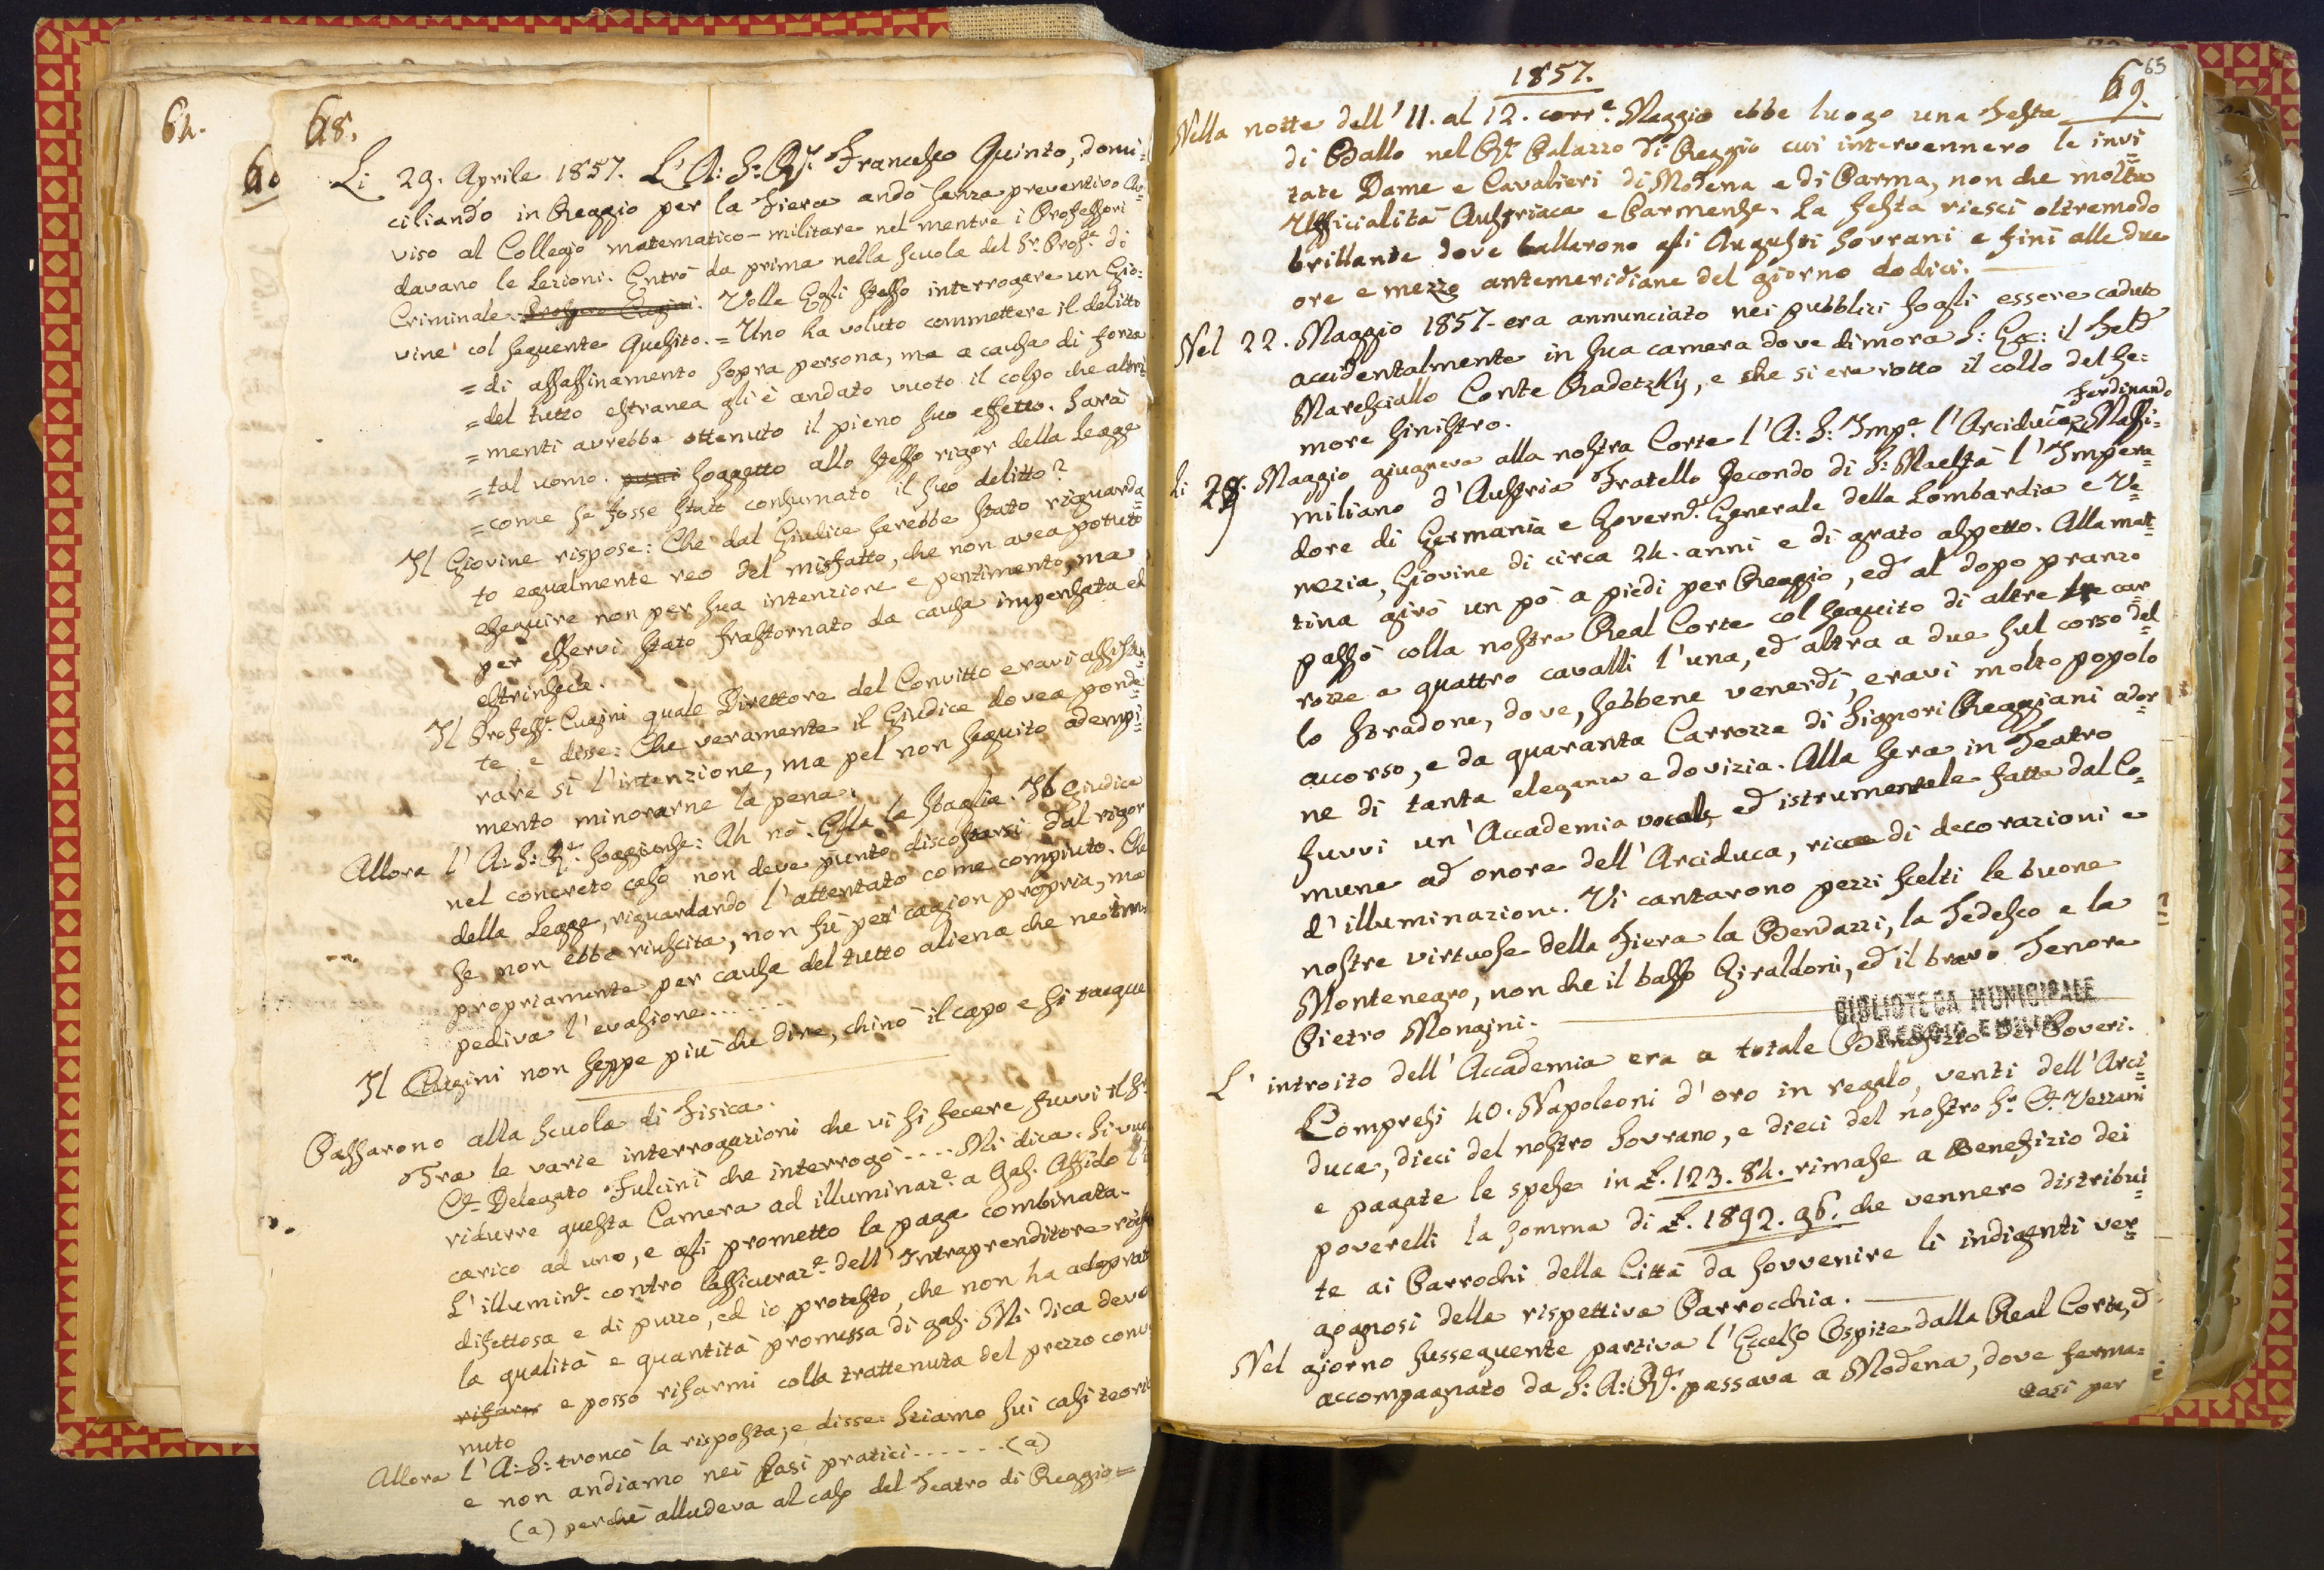 64.
60
68.
Li 29. Aprile 1857. L'A: S: R.e Francesco Quinto, domi=
ciliando in Reggio per la Fiera andò senza preventivo Av=
viso al Collegio matematico-militare nel mentre i Professori
davano le Lezioni. Entrò da prima nella scuola del Sr. Prof.e di
Criminale. Volle Egli stesso interrogare un Gio=
vine col seguente Quesito. = Uno ha voluto commettere il delitto
= di assassinamento sopra persona, ma a causa di forza
= del tutto estranea gli è andato vuoto il colpo che altri
= menti avrebbe ottenuto il pieno suo effetto. Sarà
= tal uomo. soggetto allo stesso rigor della Legge
= come se fosse stato consumato il suo delitto?
Il Giovine rispose: Che dal Giudice sarebbe stato riguarda=
to egualmente reo del misfatto, che non avea potuto
eseguire non per sua intenzione e pentimento, ma
per esservi stato frastornato da causa impensata ed
estrinseca.
Il Profess.e Cugini quale Direttore del Convitto eravi assisten=
te, e disse: Che veramente il Giudice dovea ponde=
rare sì l'intenzione, ma pel non seguito adempi=
mento minorarne la pena.
Allora l'A: S: R.e soggiunse: Ah nò. Ella la sbaglia. Il Giudice
nel concreto caso non deve punto discostarsi dal rigor
della Legge, riguardando l'attentato come compiuto. Che
se non ebbe riuscita, non fù per cagion propria, ma
propriamente per causa del tutto aliena che ne im=
pediva l'evasione.....
Il Cugini non seppe più che dire, chinò il capo e si tacque
Passarono alla scuola di Fisica.
Tra le varie interrogazioni che vi si fecere fuvvi il Sr.
Ct. Delegato Fulcini che interrogò.... Mi dica. Si vuol
ridurre questa Camera ad illuminaz.e a Gas. Affido l'in
carico ad uno, e gli prometto la paga combinata.
L'illumin.e contro l'assicuraz.e dell'Intraprenditore
difettosa e di puzzo, ed io protesto, che non ha adoprat
la qualità e quantità promessa di gas. Mi dica devo
rifarmi e posso rifarmi colla trattenuta del prezzo conve
nuto
Allora l'A: S: troncò la risposta; e disse: stiamo sui casi teorici
e non andiamo nei casi pratici......(a)
(a) perchè alludeva al caso del Teatro di Reggio =
1857.
65
69.
Nella notte dell'11. al 12. corr.e Maggio ebbe luogo una Festa
di Ballo nel R.e Palazzo di Reggio cui intervennero le invi=
tate Dame e Cavalieri di Modena e di Parma, non che molta
Ufficialità Austriaca e Parmense. La festa riescì oltremodo
brillante dove ballarono gli Augusti Sovrani e finì alle due
ore e mezzo antemeridiane del giorno dodici.
Nel 22. Maggio 1857- era annunciato nei pubblici fogli essere caduto
accidentalmente in sua camera dove dimora S: Ec: il Feld
Maresciallo Conte Radetzky, e che si era rotto il collo del fe=
more sinistro.
Ferdinando
Li 29. Maggio giugneva alla nostra Corte l'A: S: Imp.e l'Arciduca Massi=
miliano d'Austria Fratello secondo di S: Maestà l'Impera=
dore di Germania e Govern.e Generale della Lombardia e Ve=
nezia, Giovine di circa 24. anni e di grato aspetto. Alla mat=
tina girò un pò a piedi per Reggio, ed al dopo pranzo
passò colla nostra Real Corte col seguito di altre tre car=
rozze a quattro cavalli l'una, ed altra a due sul corso del=
lo stradone, dove, sebbene venerdì, eravi molto popolo
accorso, e da quaranta Carrozze di Signori Reggiani ador=
ne di tanta eleganza e dovizia. Alla sera in Teatro
fuvvi un'Accademia vocale, ed istrumentale fatta dal Co=
mune ad onore dell'Arciduca, ricca di decorazioni e
d'illuminazione. Vi cantarono pezzi scelti le buone
nostre virtuose della Fiera la Bendazzi, la Tedesco e la
Montenegro, non che il basso Giraldoni, ed il bravo Tenore
Pietro Mongini.
BIBLIOTECA MUNICIPALE
REGGIO EMILIA
L'introito dell'Accademia era a totale Benefizio dei Poveri.
Compresi 40. Napoleoni d'oro in regalo, venti dell'Arci=
duca, dieci del nostro Sovrano, e dieci del nostro Sr. Ct. Vezzani
e pagate le spese in £. 123. 84. rimase a Benefizio dei
poverelli la somma di £. 1892. 96. che vennero distribui=
te ai Parrochi della Città da sovvenire li indigenti ver=
gognosi della rispettiva Parrocchia.
Nel giorno susseguente partiva l'Eccelso Ospite dalla Real Corte, ed
accompagnato da S: A: R.e passava a Modena, dove ferma=
tasi per